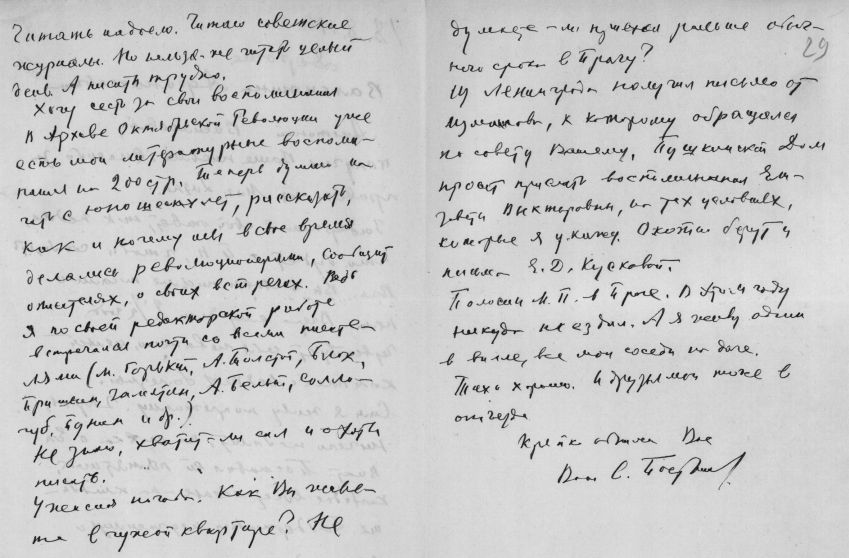 Читать надоело. Читаю советские
журналы. Но нельзя же читать целый
день. А писать трудно.
Хочу сесть за свои воспоминания
В Архиве Октябрьской Революции уже
есть мои литературные воспоми-
нания на 200 стр. Теперь думаю на-
чать с юношеских лет, рассказать,
как и почему мы в свое время
делались революционерами, сообщить
о писателях, о своих встречах. Ведь
я по своей редакторской работе
встречался почти со всеми писате-
лями (М. Горький, А. Толстой, Блок,
Пришвин, Замятин, А. Белый, Солло-
губ, Бунин и др.)
Не знаю, хватит-ли сил и охоты
писать.
Ужасная погода. Как Вы живе-
те в чужой квартире? Не
29
думаете-ли приехать раньше обыч-
ного срока в Прагу?
Из Ленинграда получил письмо от
Измайлова, к которому обращался
по совету Вашему, Пушкинский Дом
просит прислать воспоминания Ека-
Викторовны, на тех условиях,
которые я укажу. Охотно берут и
письма Е. Д. Кусковой.
М. П. в Праге. В этом году
никуда не ездил. А я живу один
в вилле, все мои соседи на даче.
Тихо хорошо. И друзья мои тоже в
отъезде
Крепко обнимаю Вас
Ваш С.